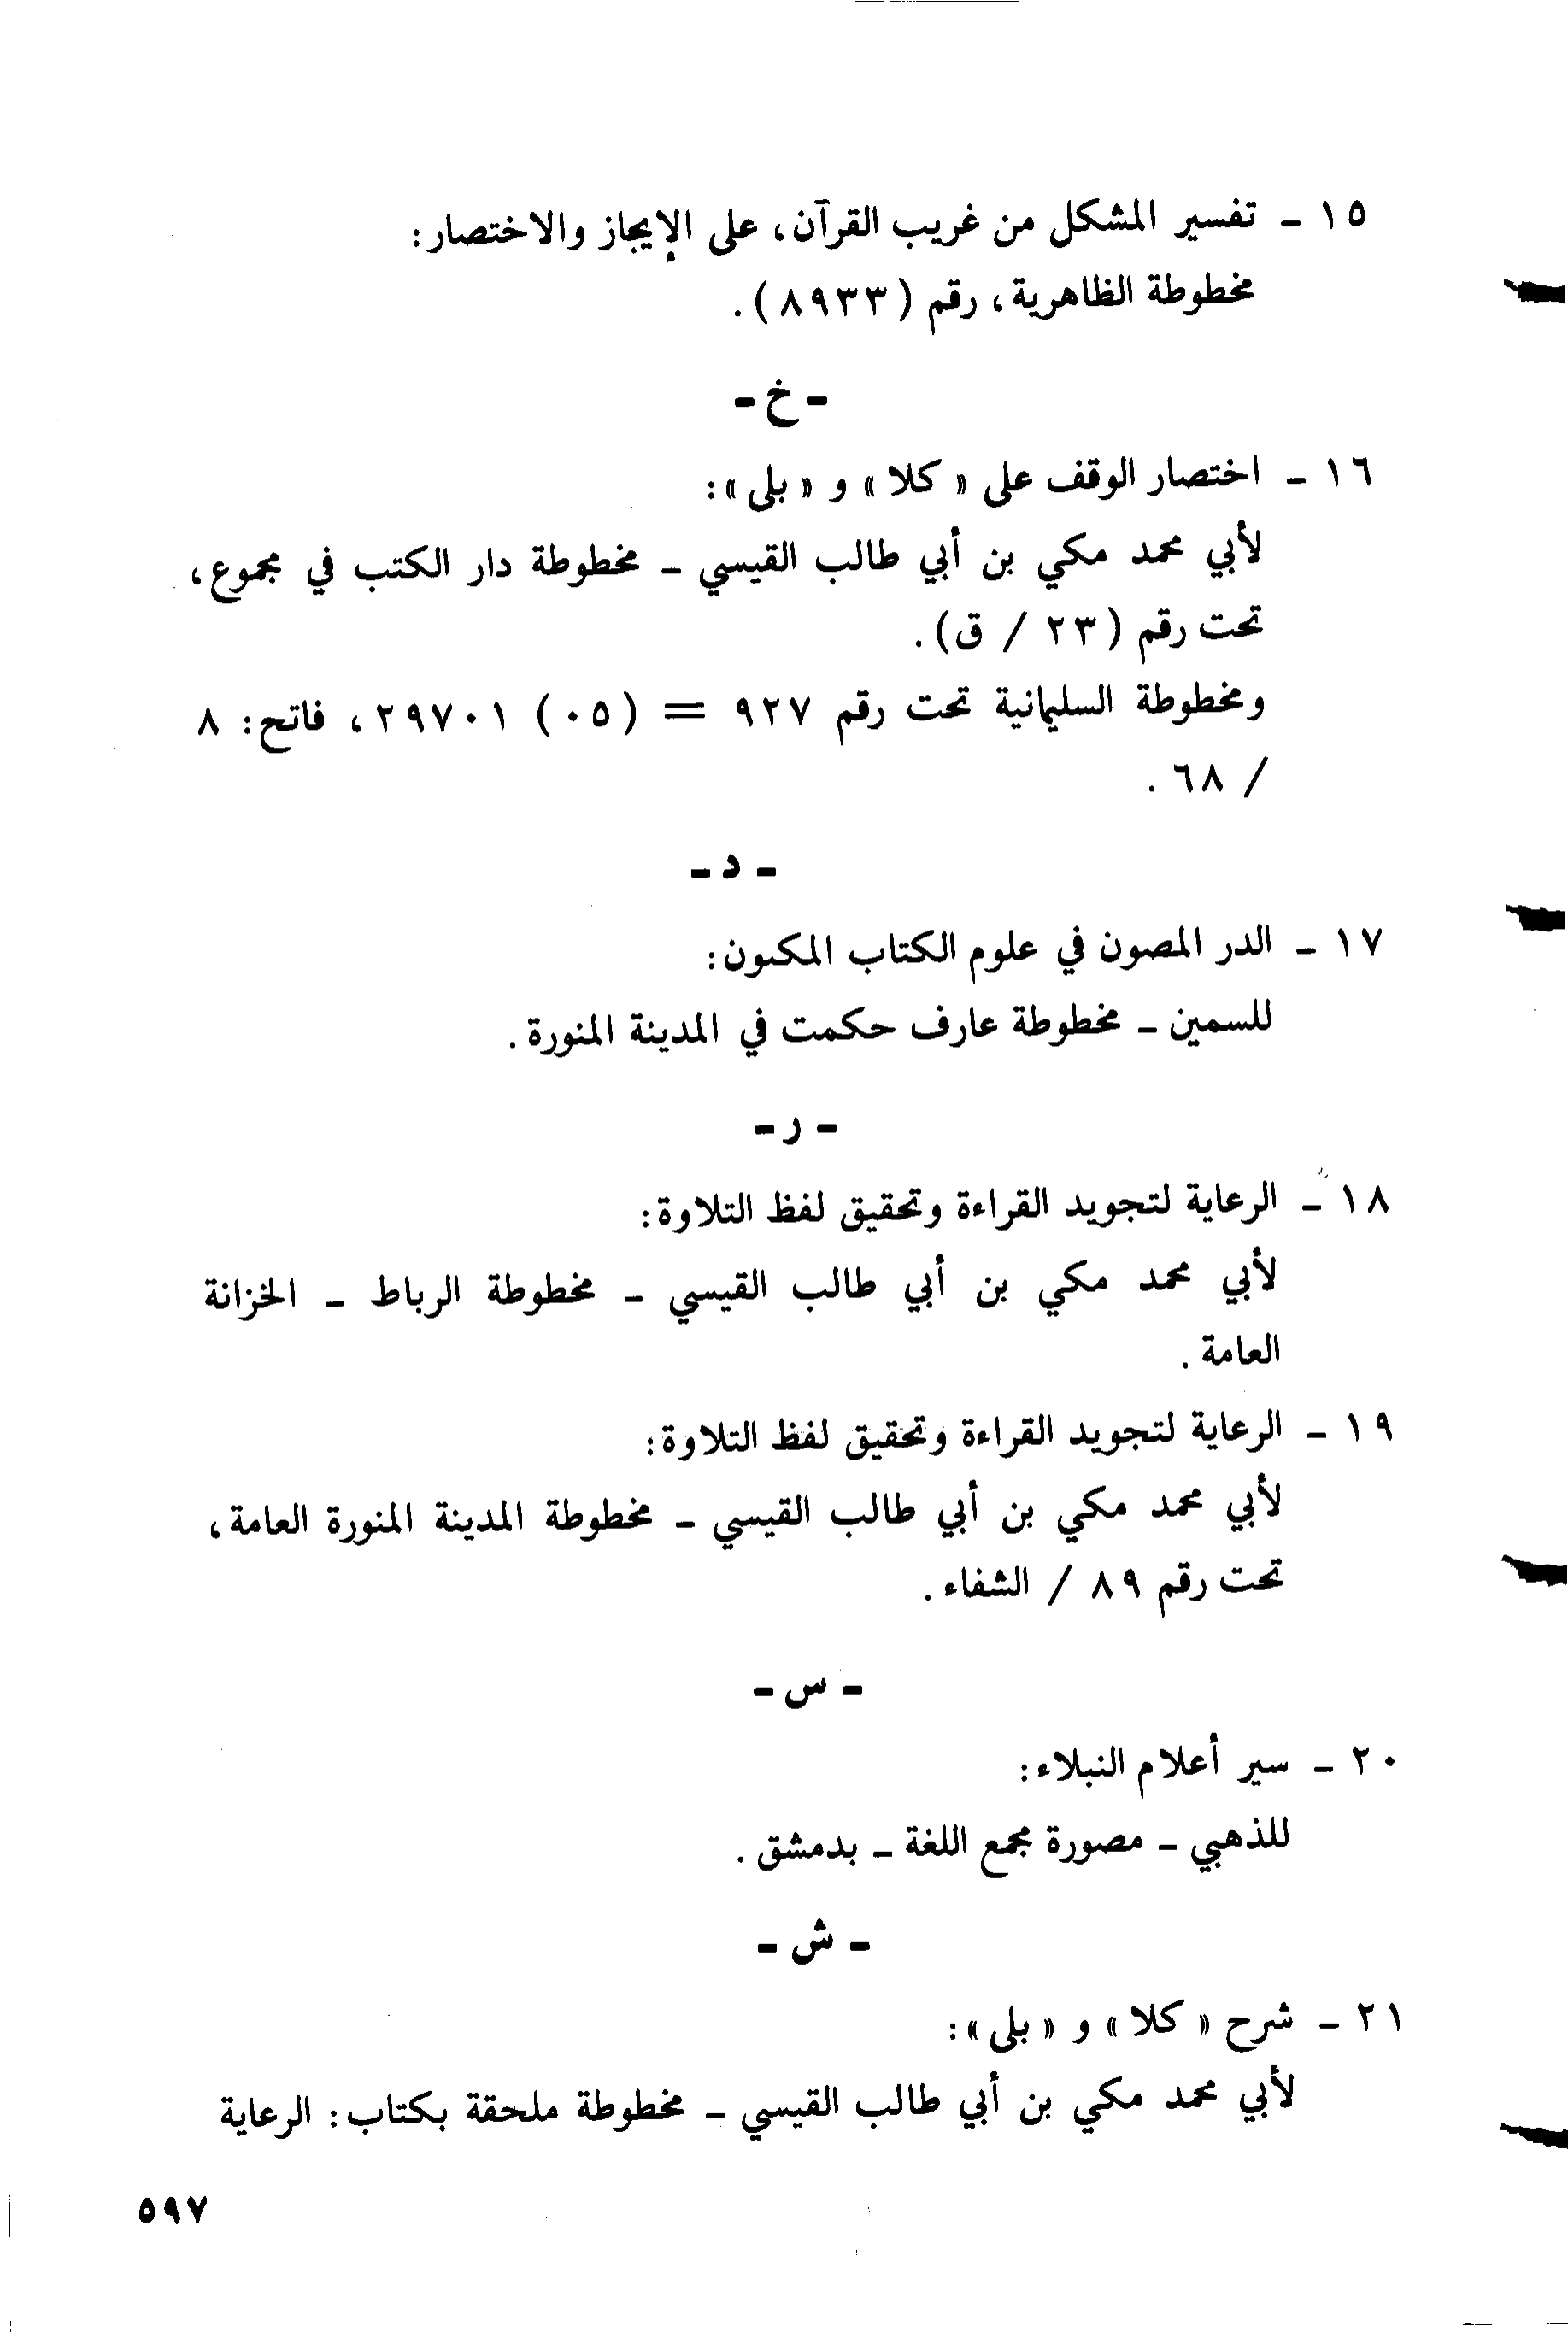 ١٥ - تفسير المشكل من غريب القرآن، على الإيجاز والاختصار:
مخطوطة الظاهرية، رقم (٨٩٣٣).
- خ -
١٦ - اختصار الوقف على « كلا » و « بلى »:
لأبي محمد مكي بن أبي طالب القيسي - مخطوطة دار الكتب في مجموع،
تحت رقم (٢٣ / ق).
ومخطوطة السليمانية تحت رقم ٩٢٧ = (٠٥) ٢٩٧٠١، فاتح: ٨
/ ٦٨.
- د -
١٧ - الدر المصون في علوم الكتاب المكنون:
للسمين - مخطوطة عارف حكمت في المدينة المنورة.
- ر -
١٨ - الرعاية لتجويد القراءة وتحقيق لفظ التلاوة:
لأبي محمد مكي بن أبي طالب القيسي - مخطوطة الرباط - الخزانة
العامة.
١٩ - الرعاية لتجويد القراءة وتحقيق لفظ التلاوة:
لأبي محمد مكي بن أبي طالب القيسي - مخطوطة المدينة المنورة العامة،
تحت رقم ٨٩ / الشفاء.
- س -
٢٠ - سير أعلام النبلاء:
للذهبي - مصورة مجمع اللغة - بدمشق.
- ش -
٢١ - شرح « كلا » و « بلى »:
لأبي محمد مكي بن أبي طالب القيسي - مخطوطة ملحقة بكتاب: الرعاية
٥٩٧